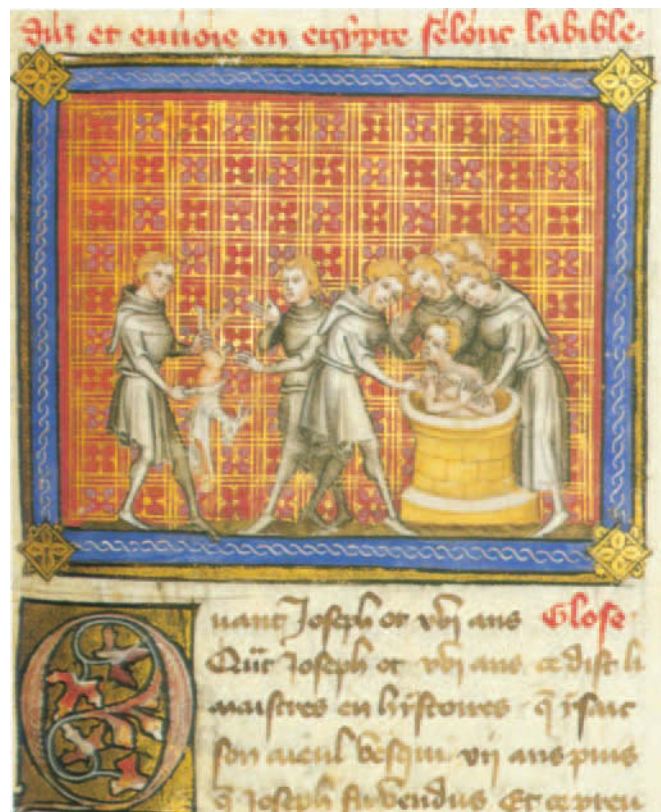 et envoie en egypte selonc la bible.
Quant Joseph ot xvj ans Glose
Quāt Joseph ot xvj ans ce dist li
maistres en hystoires q̄ ysaac
son aieul vesqui xij ans puis
q̄ Joseph fu vendus Et